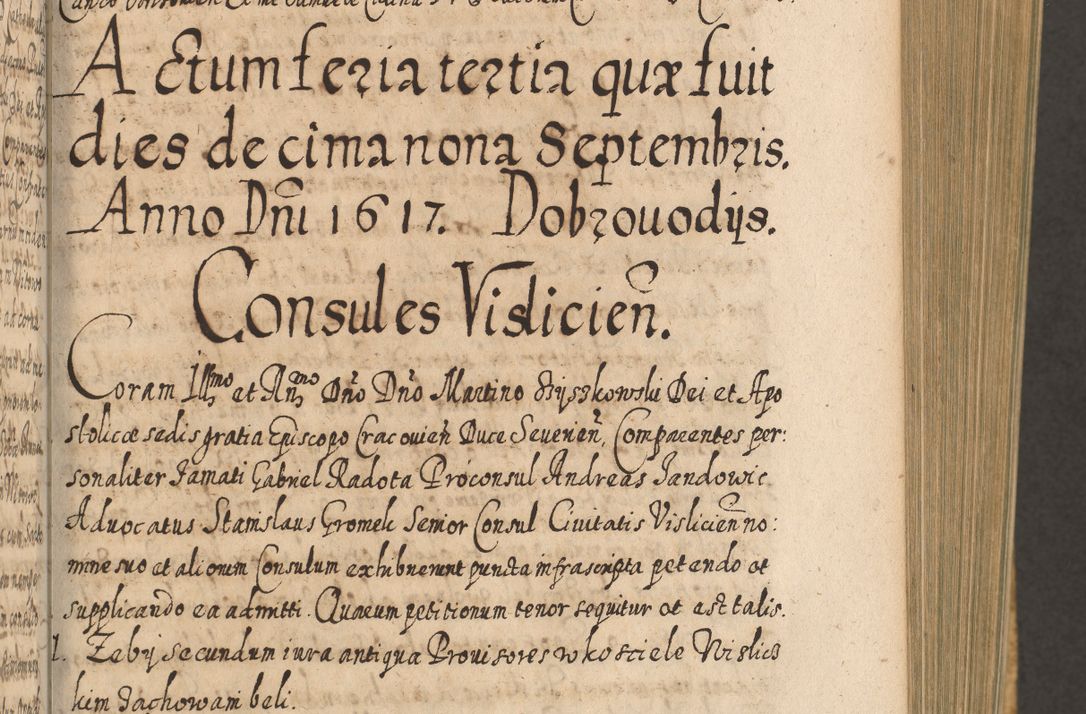 Actum feria tertia quæ fuit
dies decima nona Septembris.
Anno Dñi 1617. Dobrouodijs.
Consules Vislicieñ.
Coram Illmo et Rñmo Dño Dño Martino Szyszkowski Dei et Apo
stolicæ sedis gratia Episcopo Cracovieñ Duce Severieñ, Comparentes per:
sonaliter famati Gabriel Radota Proconsul Andreas Jandowic
Advocatus Stanislaus Gromek Senior Consul Civitatis Vislicieñ no:
mine suo et aliorum Consulum exhibuerunt puncta infrascripta petendo et
supplicando ea admitti. Quarum petitionum tenor sequitur et est talis.
1. Zeby secundum iura antiqua Provisores w kosciele Wislicz
kim zachowani beli.